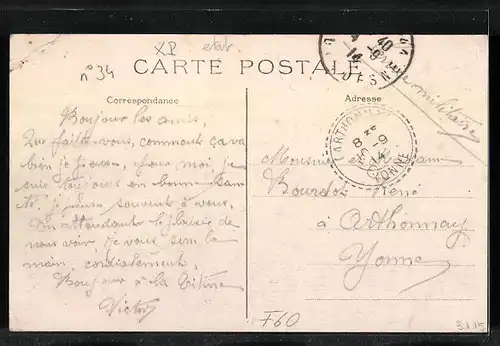 XI état
n° 34
CARTE POSTALE
Correspondance
Adresse
militaire
ARTHONNAY
8 35
30-9
14
YONNE
Bonjour les amis,
Que faites-vous, comment ça va
bien je pense, pour moi, je
suis toujours en bonne san
té, je pense souvent à vous.
En attendant le plaisir de
nous voir, je vous serre la
main, cordialement,
Bonjour à la
Victor
Monsieur
Bourdot René
à Arthonnay
Yonne
F60